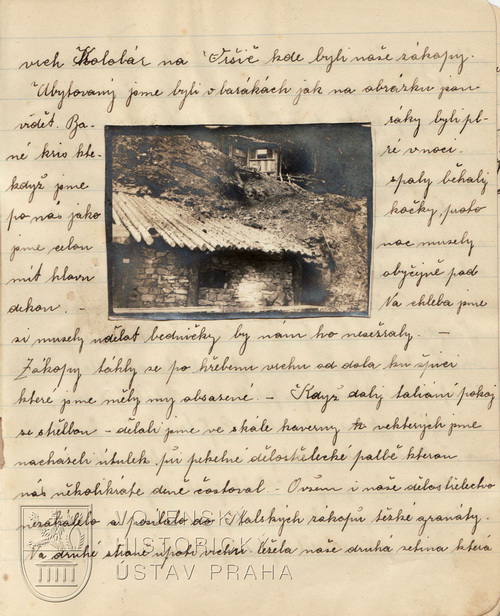 vrch Kolobár na Vršič kde byli naše zákopy.
Ubytovaný jsme byli v barákách jak na obrázku jsou
vidět. Ba- raky byli pl-
né kris kte- ré v noci
když jsme spaly běhaly
po nás jako kočky, proto
jsme celou noc musely
mít hlavu obyčejně pod
dekou. – Na chleba jsme
si musely udělat bedničky by nám ho nesežraly. –
Zákopy táhly se po hřebenu vrchu od dola ku špici
které jsme měly my obsazené. – Když daly taliáni pokoj
se střelbou – dělali jsme ve skále kaverny v nekterých jsme
nacházeli útulek při pekelné dělostřelecké palbě kterou
nás několikráte deně častoval. – Ovšem i naše dělostřelectvo
nezahálelo a posílalo do Italských zákopů těžké granáty.
Na druhé straně úpatí vrchu ležela naše druhá setina která
VOJENSKÝ
HISTORICKÝ
ÚSTAV PRAHA